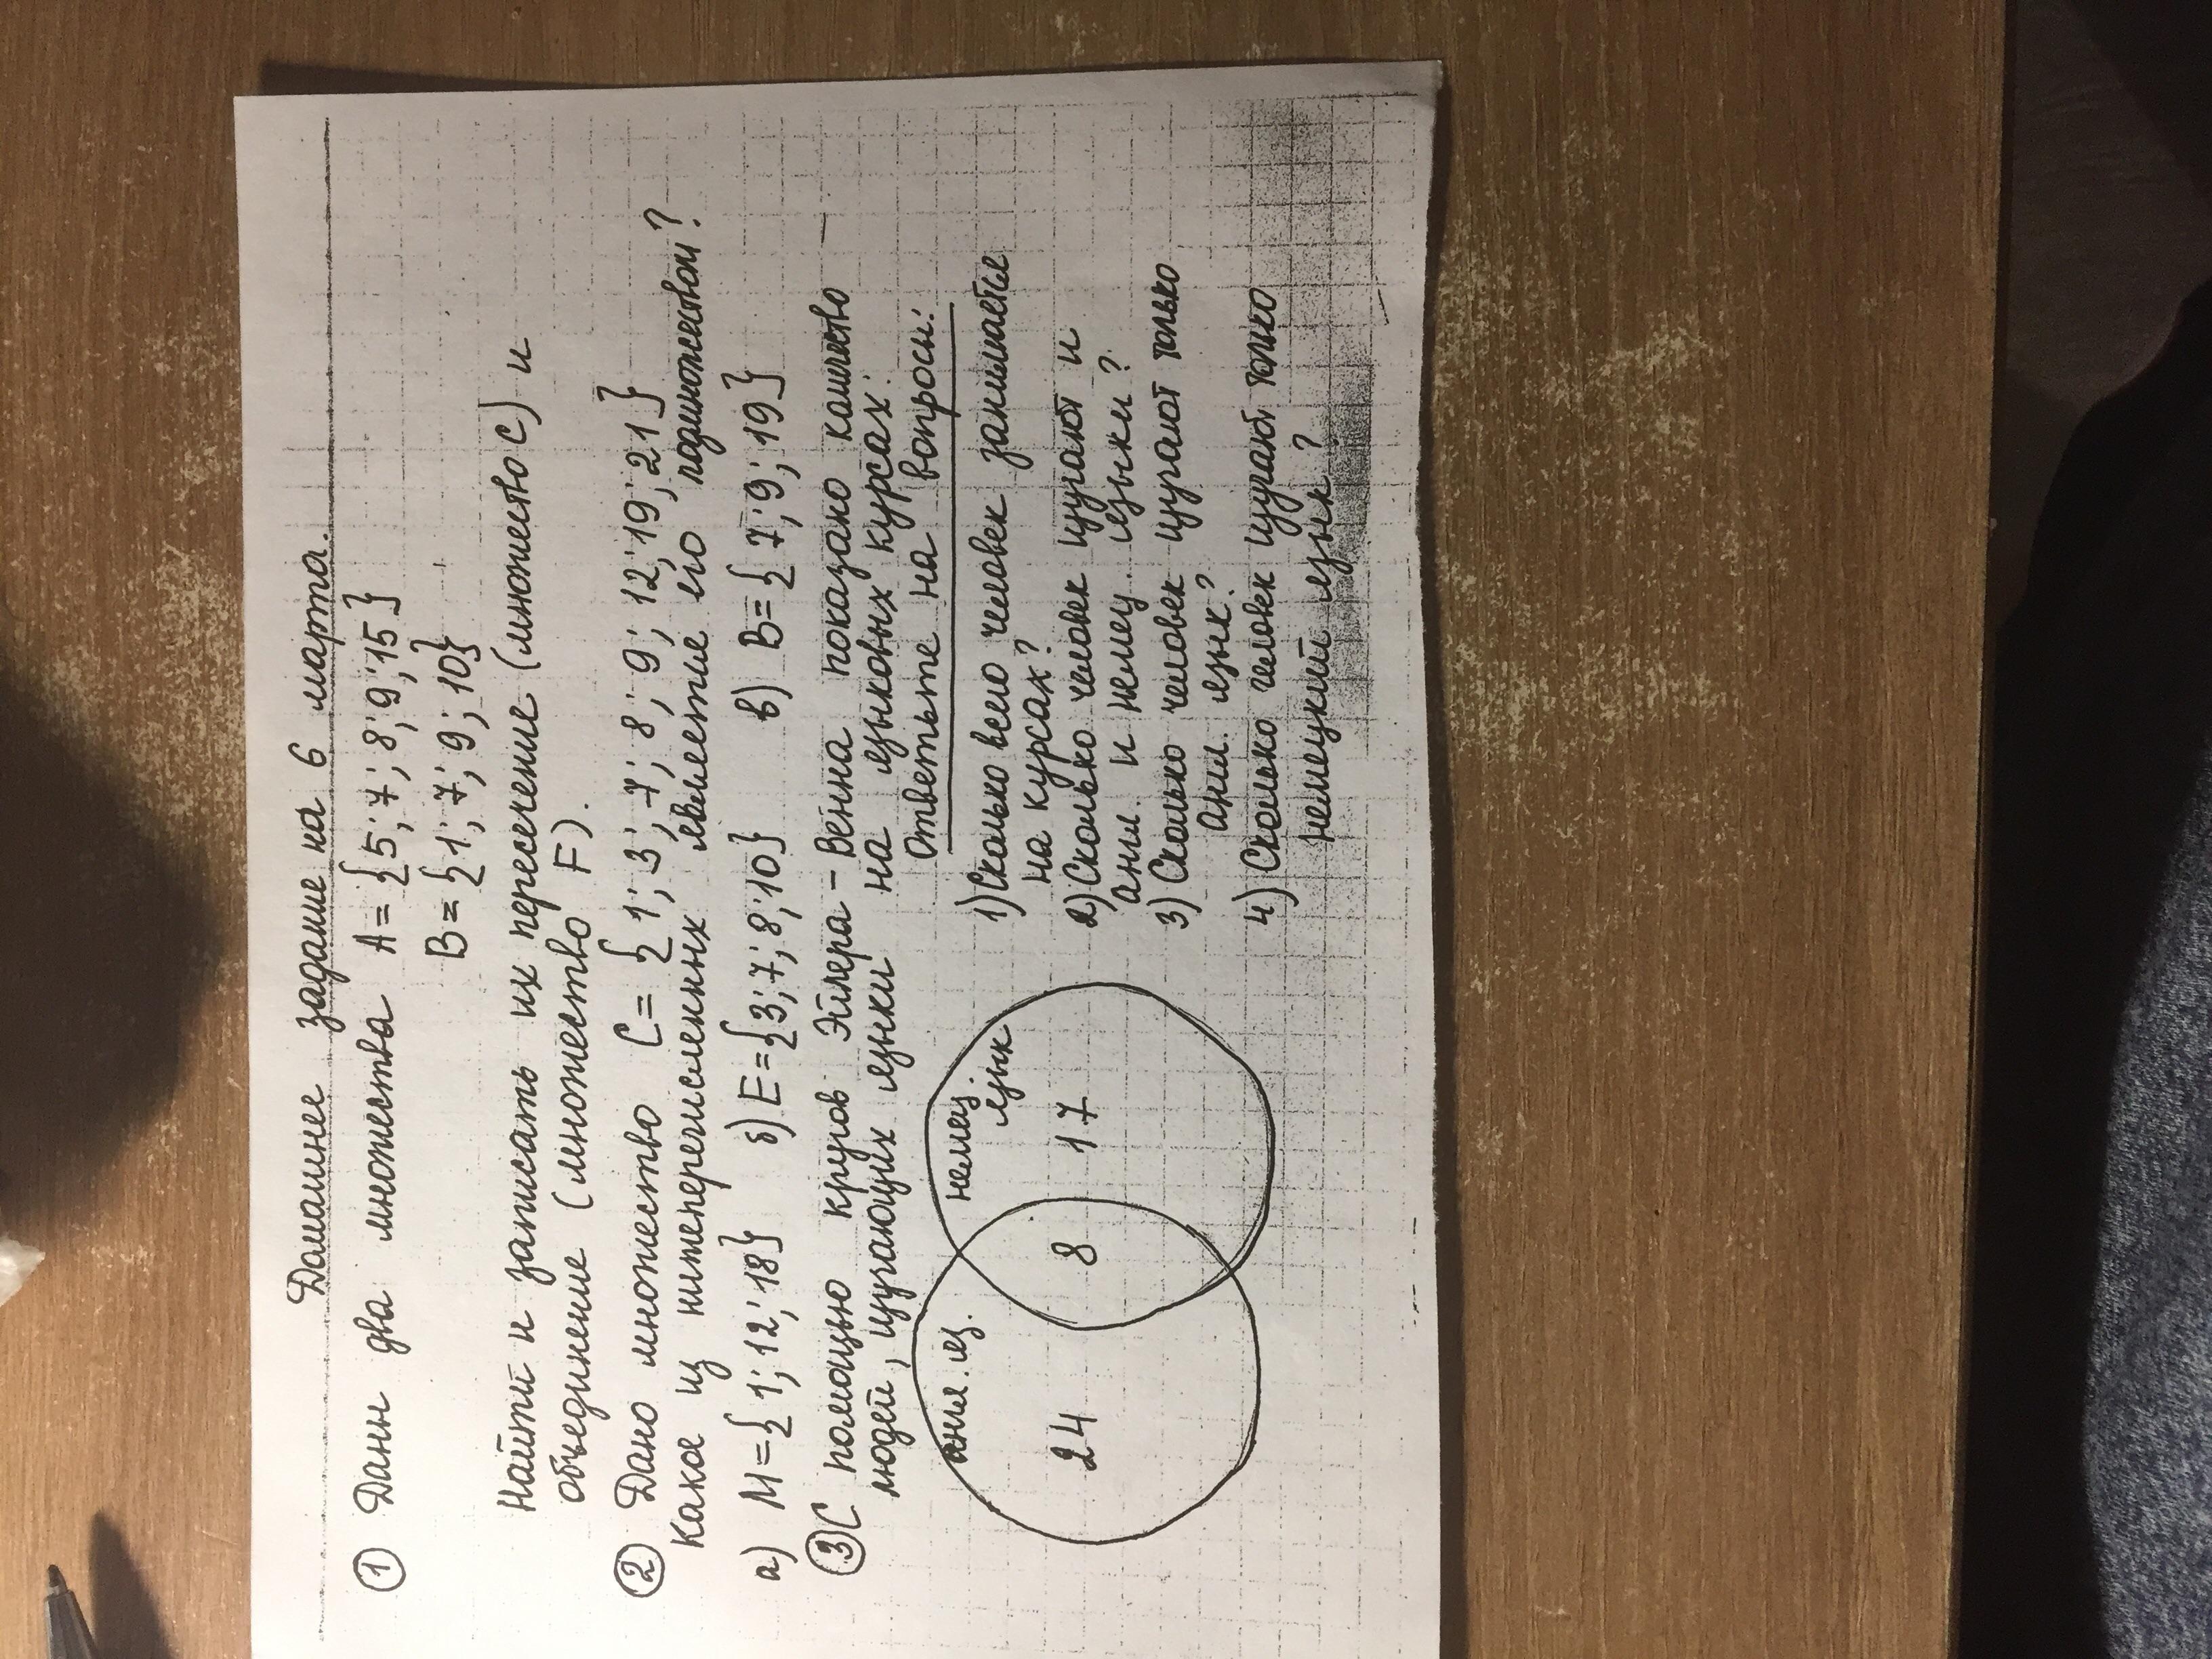 Домашнее задание на 6 марта.
① Даны два множества A = {5; 7; 8; 9; 15}
B = {1; 7; 9; 10}
Найти и записать их пересечение (множество C) и
объединение (множество F).
② Дано множество C = {1; 3; 7; 8; 9; 12; 19; 21}
Какое из нижеперечисленных является его подмножеством?
а) M = {1; 12; 18} б) E = {3; 7; 8; 10} в) B = {7; 9; 19}
③ С помощью кругов Эйлера - Венна показано количество
людей, изучающих языки на языковых курсах.
Ответьте на вопросы:
англ. яз.
немец.
язык
24 8 17
1) Сколько всего человек занимается
на курсах?
2) Сколько человек изучают и
англ. и немец. языки?
3) Сколько человек изучают только
англ. язык?
4) Сколько человек изучают только
немецкий язык?